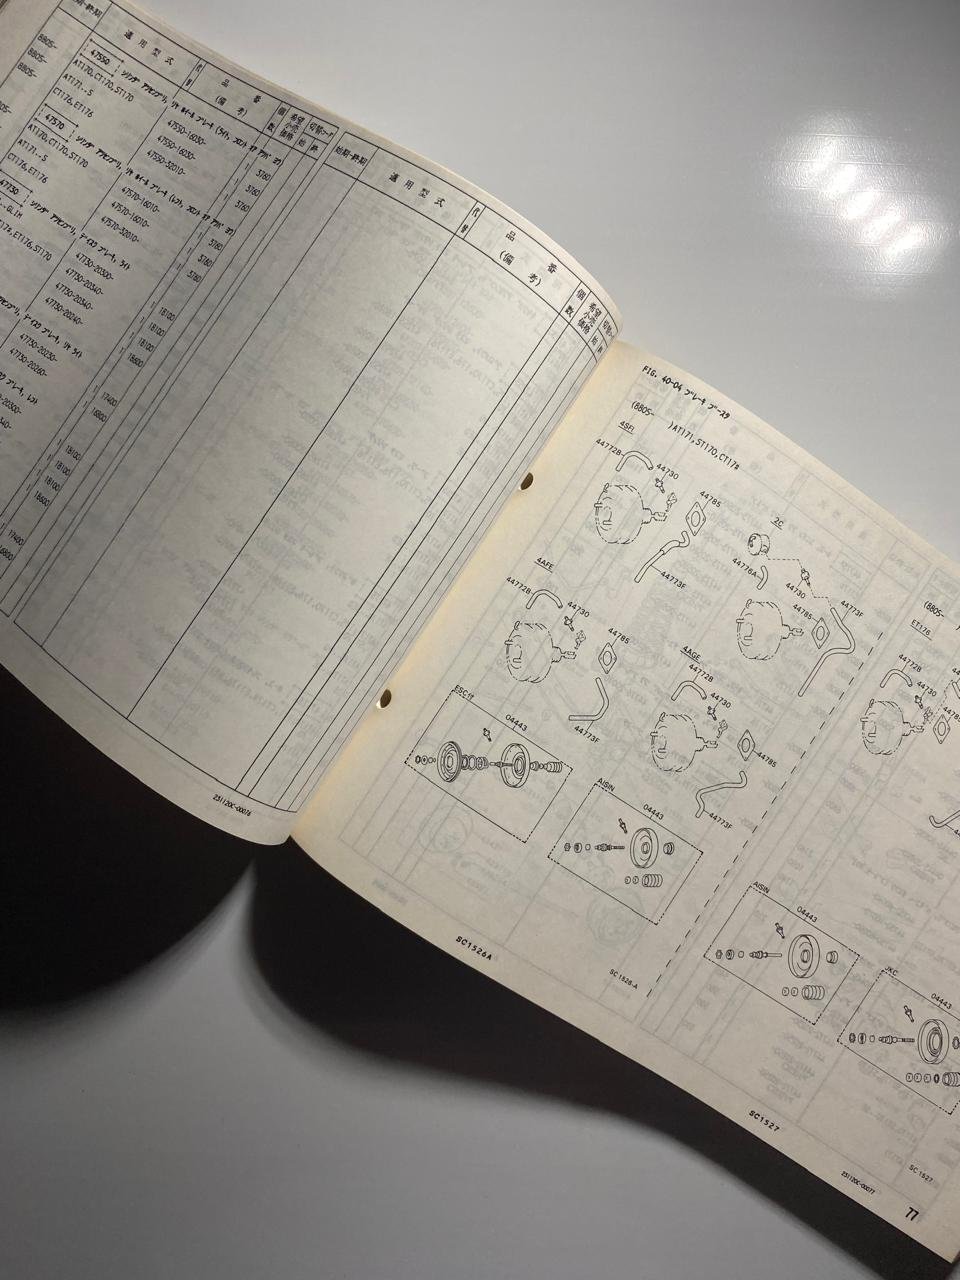 始期-終期
適用型式
代替
品番
(備考)
個数
希望小売価格
切替コード
始
終
8805-
8805-
8805-
47550 シリンダ アセンブリ, リヤ ホイール ブレーキ (ライト, フロント
AT170,CT170,ST170 47550-16030- 1 5760
AT171--S 47550-16030- 1 5760
CT176,ET176 47550-32010- 1 5760
47570 シリンダ アセンブリ, リヤ ホイール ブレーキ (レフト, フロント
AT170,CT170,ST170 47570-16010- 1 5760
AT171--S 47570-16010- 1 5760
CT176,ET176 47570-32010- 1 5760
47730 シリンダ アセンブリ, ディスク ブレーキ, ライト
--GLIM 47730-20300- 1 18100
ET176,ST170 47730-20340- 1 18100
47730-20240- 1 18600
ディスク ブレーキ, リヤ ライト
47730-20230- 1 17400
47730-20260- 1 16800
ブレーキ, レフト
20300- 1 18100
340- 1 18100
1 18600
1 17400
16800
始期-終期
適用型式
代替
品番
(備考)
個数
希望小売価格
始
231120C-00076
FIG. 40-04 ブレーキ ブースタ
(8805- )AT171,ST170,CT17#
4SFI
44772B
44730
44785
44773F
2C
44776A
44730
44785
44773F
4AFE
44772B
44730
44785
44773F
4AGE
44772B
44730
44785
44773F
ESC付
04443
AISIN
04443
SC1526-A
SC1526A
(8805-
ET176
44772B
44730
AISIN
04443
JKC
04443
SC1527
SC1527
231120C-00077
77